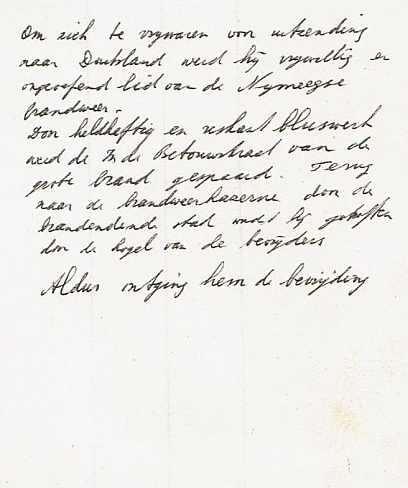 Om zich te vrijwaren voor uitzending
naar Duitsland werd hij vrijwillig en
ongeoefend lid van de Nijmeegse
brandweer.
Door heldhaftig en riskant bluswerk
werd de In de Betouwstraat van de
grote brand gespaard. Terug
naar de brandweerkazerne door de
brandendende stad werd hij getroffen
door de kogel van de bevrijders
Aldus ontging hem de bevrijding